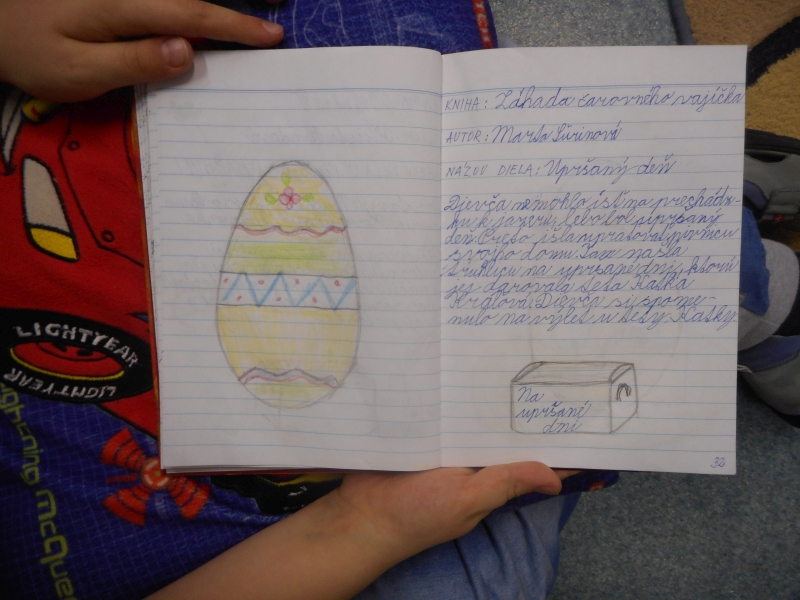 KNIHA: Záhada čarovného vajíčka
AUTOR: Marta Šurinová
NÁZOV DIELA: Upršaný deň
Dievča nemohlo ísť na prechádz-
ku k jazeru, lebo bol upršaný
deň. Preto išla upratovať pivnicu
svojho domu. Tam našla
truhlicu na upršané dni, ktorú
jej darovala teta Katka
Kráľová. Dievča si spome-
nulo na výlet u tety Katky.
Na
upršané
dni
32
LIGHTYEAR
LIGHTYEAR
Lightning McQueen